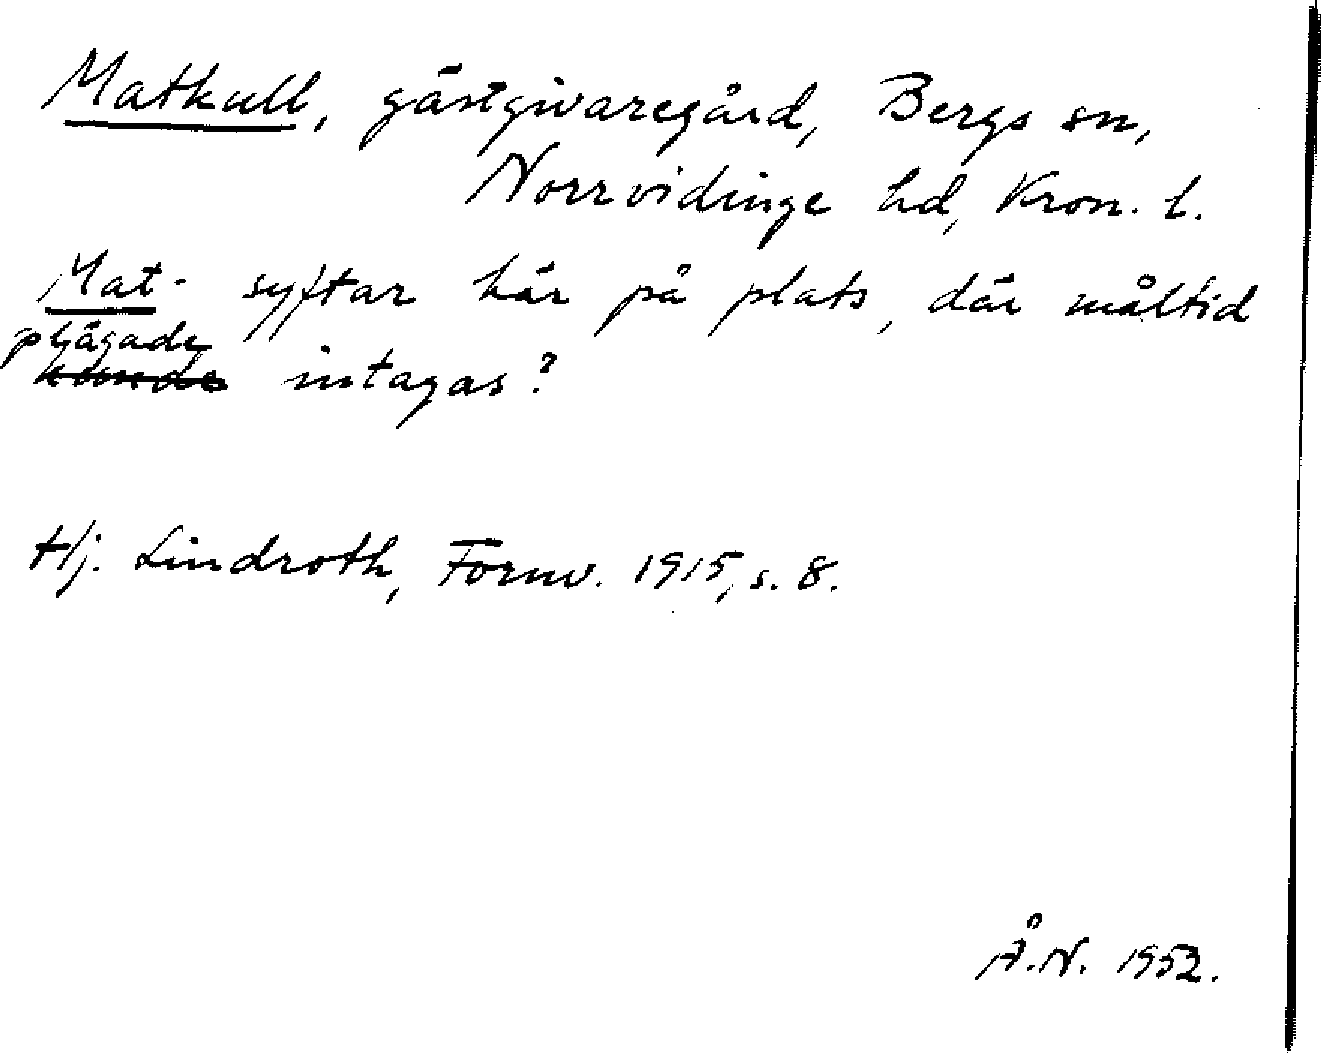 Matkull, gästgivaregård, Bergs sn,
Norrvidinge hd, Kron. l.
Mat- syftar här på plats, där måltid
plägade
kunde intagas?
Hj. Lindroth, Fornv. 1915, s. 8.
Å.N. 1952.